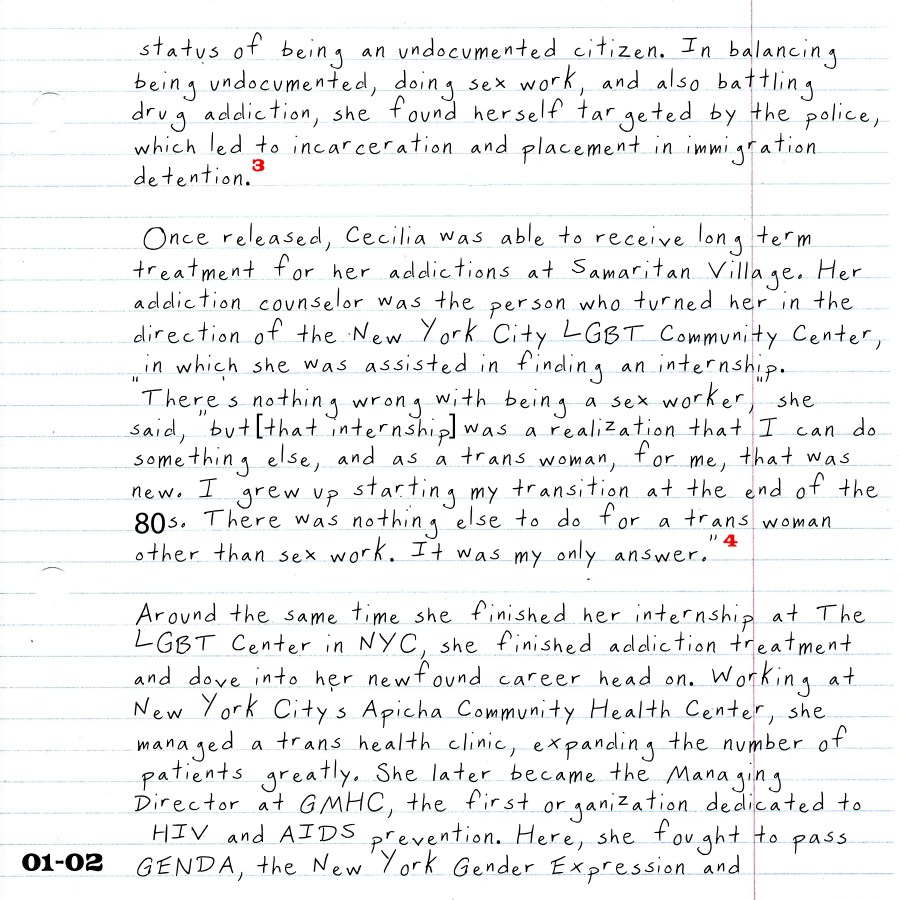 status of being an undocumented citizen. In balancing
being undocumented, doing sex work, and also battling
drug addiction, she found herself targeted by the police,
which led to incarceration and placement in immigration
detention.3
Once released, Cecilia was able to receive long term
treatment for her addictions at Samaritan Village. Her
addiction counselor was the person who turned her in the
direction of the New York City LGBT Community Center,
in which she was assisted in finding an internship.
"There's nothing wrong with being a sex worker," she
said, "but [that internship] was a realization that I can do
something else, and as a trans woman, for me, that was
new. I grew up starting my transition at the end of the
80s. There was nothing else to do for a trans woman
other than sex work. It was my only answer."4
Around the same time she finished her internship at The
LGBT Center in NYC, she finished addiction treatment
and dove into her newfound career head on. Working at
New York Citys Apicha Community Health Center, she
managed a trans health clinic, expanding the number of
patients greatly. She later became the Managing
Director at GMHC, the first organization dedicated to
HIV and AIDS prevention. Here, she fought to pass
01-02 GENDA, the New York Gender Expression and